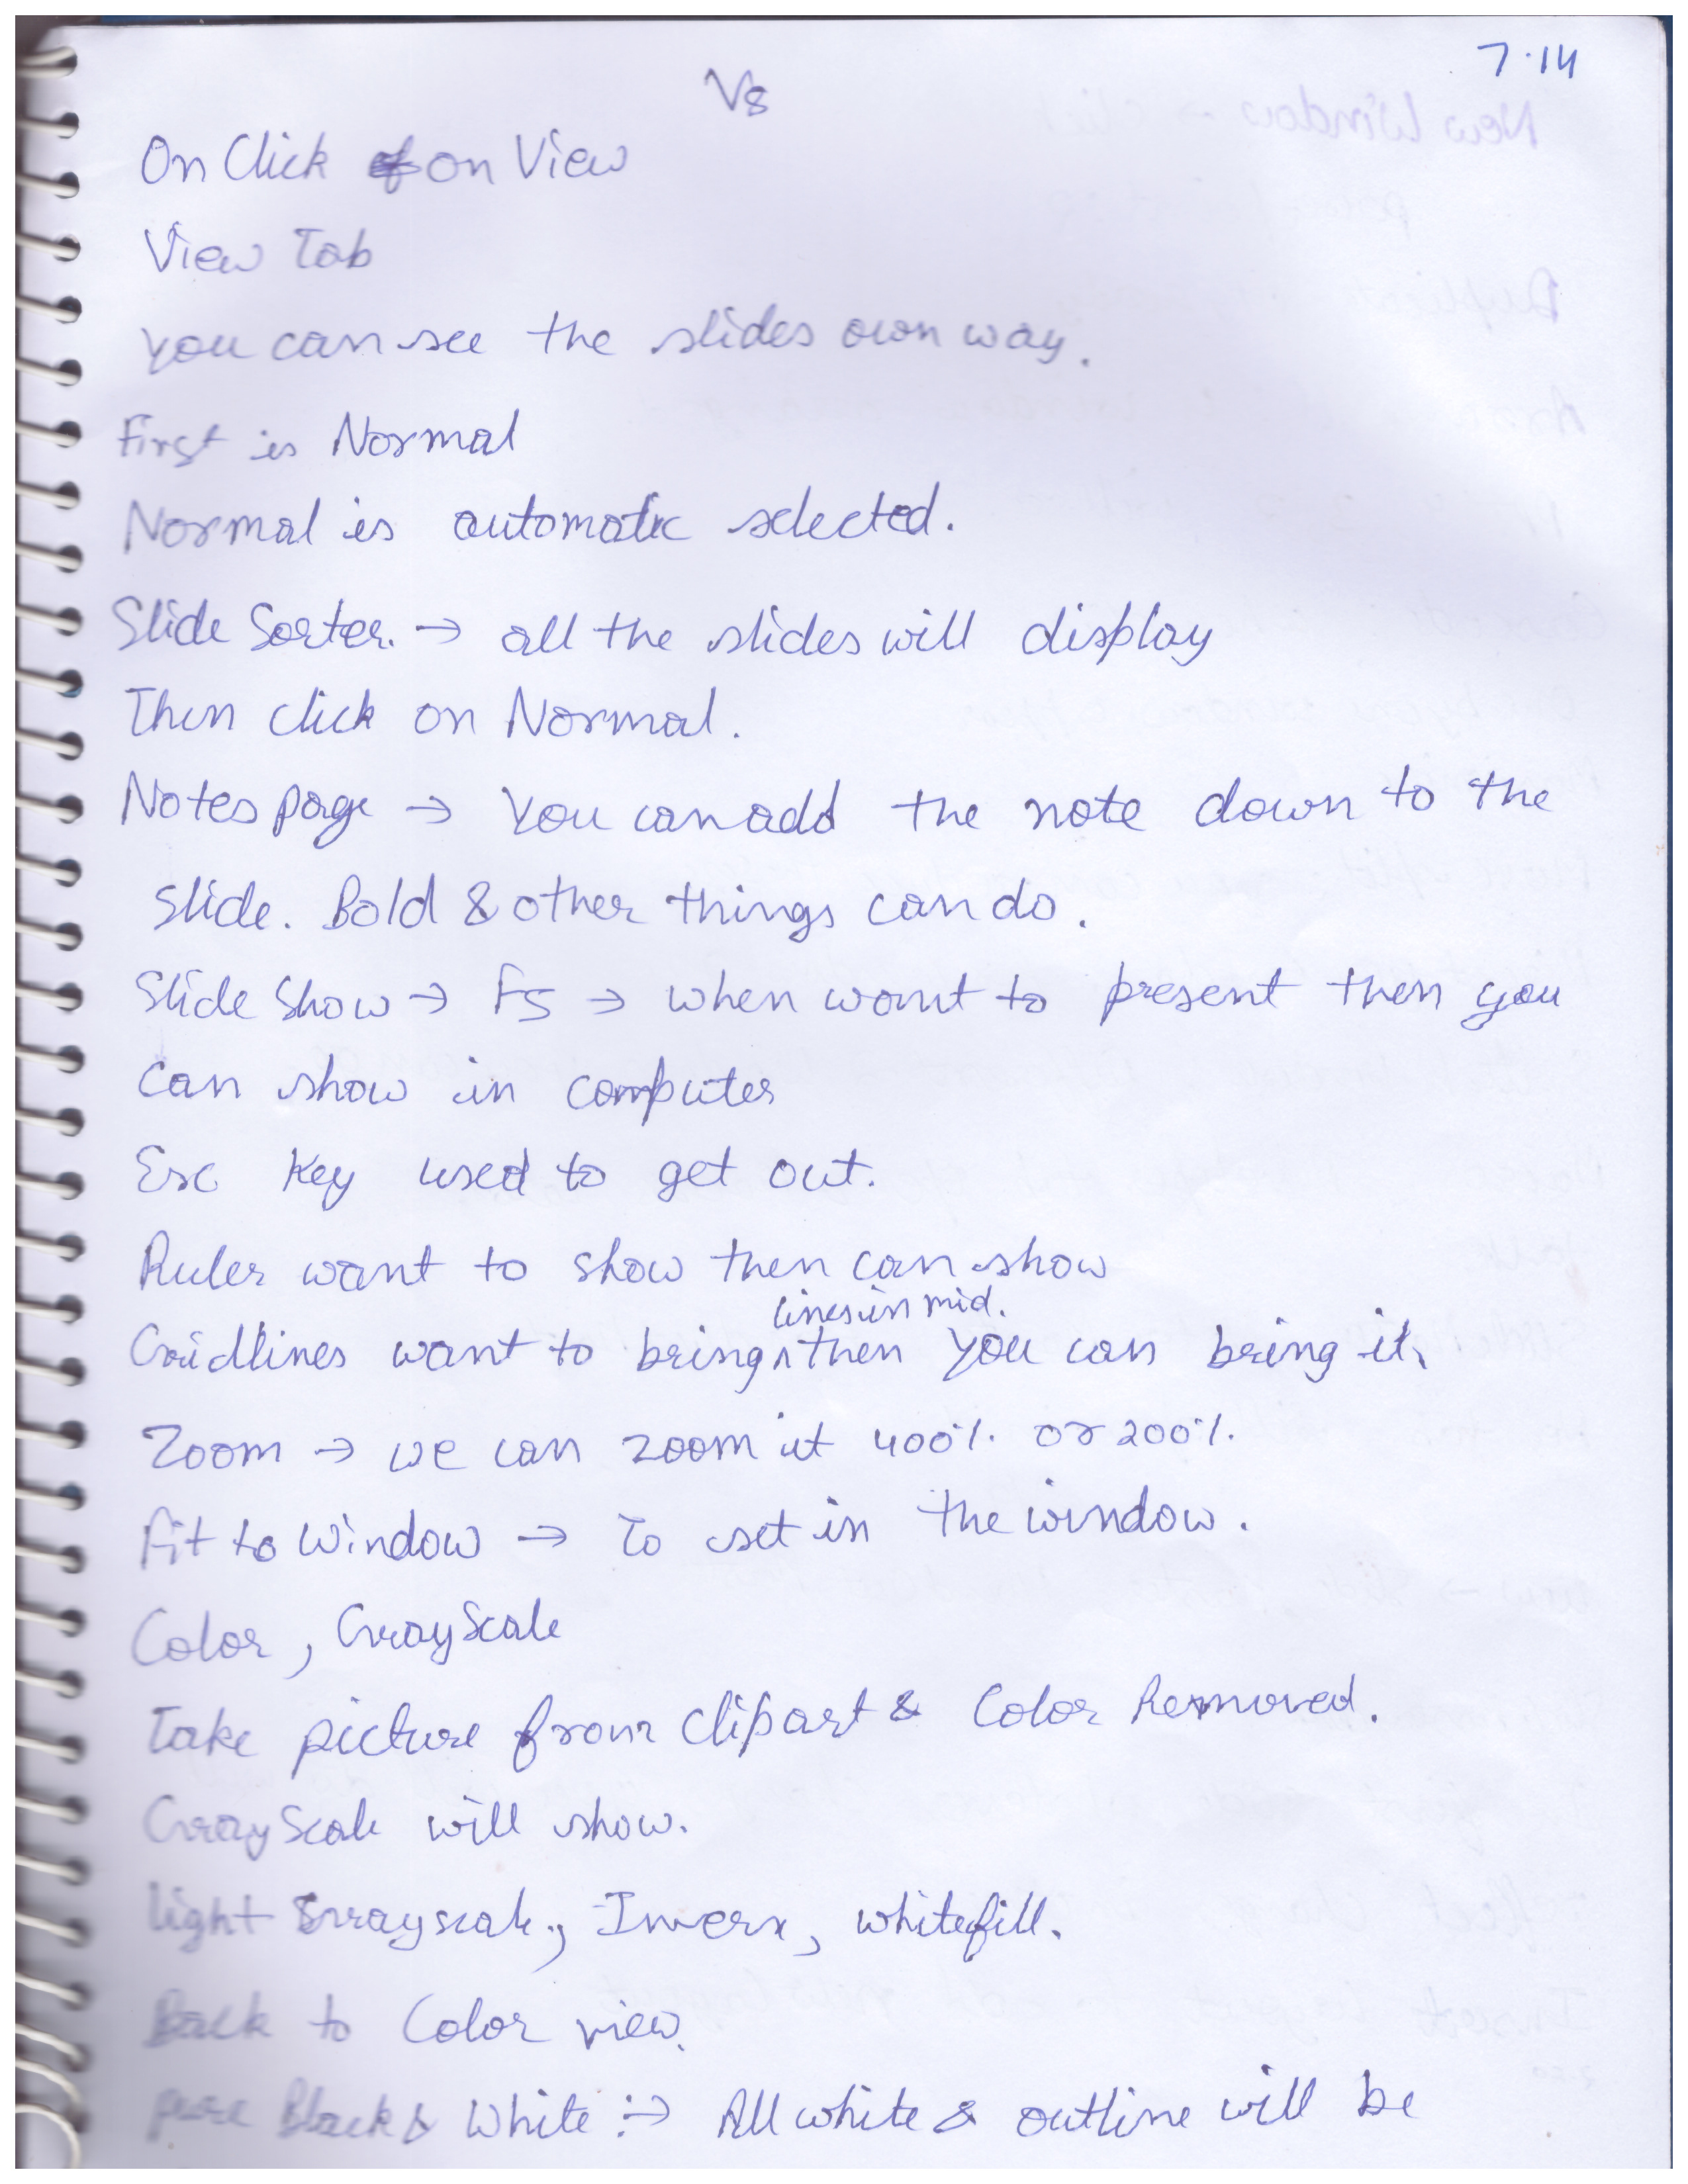 7.14
V8
On Click on View
View Tab
You can see the slides own way.
First is Normal
Normal is automatic selected.
Slide Sorter. → all the slides will display
Then click on Normal.
Notes page → You can add the note down to the
slide. Bold & other things can do.
Slide Show → F5 → when want to present then you
can show in computer
Esc Key used to get out.
Ruler want to show then can show
lines in mid.
Gridlines want to bring ^ then you can bring it.
Zoom → we can zoom it 400% or 200%.
Fit to Window → To set in the window.
Color, GrayScale
Take picture from Clipart & Color Removed.
GrayScale will show.
light Grayscale, Invers, whitefill.
Back to Color view.
pure Black & White :→ All white & outline will be